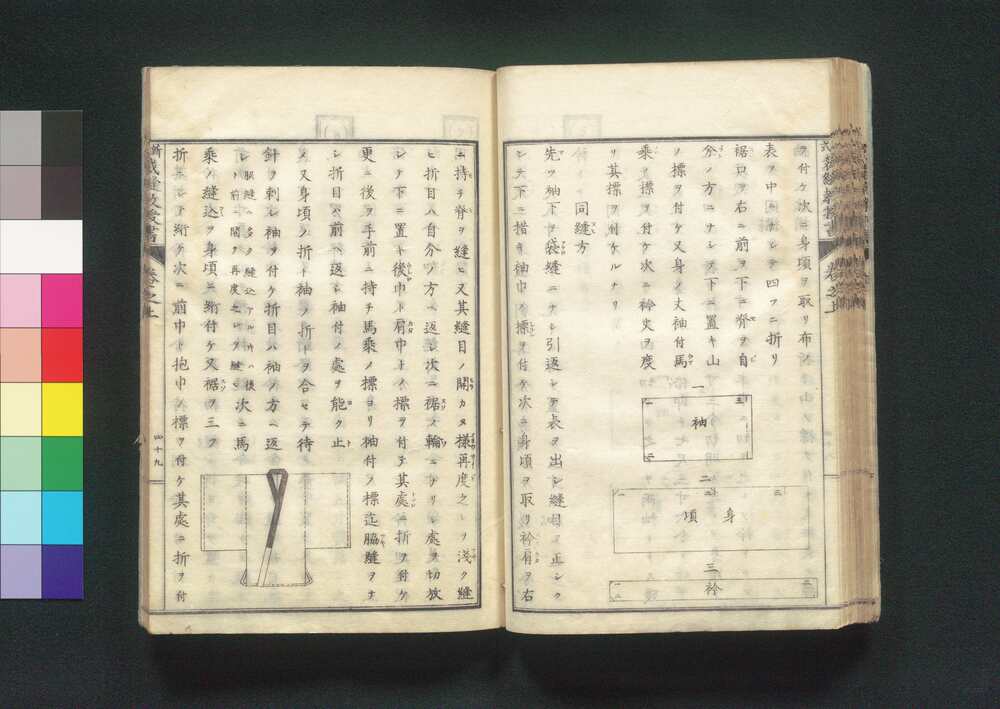 ヲ付ケ次ニ身頃ヲ取リ布ノ
表ヲ中ニナシテ四フニ折リ
裾口ヲ右ニ前ヲ下ニ脊ヲ自
分ノ方ニナシテ下ニ置キ山
ノ標ヲ付ケ又身ノ丈袖付馬
乗ノ標ヲ付ケ次ニ衿丈ヲ度
リ其標ヲ付ケルナリ
同縫方
先ツ袖下ヲ袋縫ニナシ引返シテ表ヲ出シ縫目ヲ正シク
シテ下ニ措キ袖巾ノ標ヲ付ケ次ニ身頃ヲ取リ衿肩ヲ右
一
袖
二
身頃
三
衿
ニ持チ脊ヲ縫ヒ又其縫目ノ開カヌ様再度之レヲ浅ク縫
ヒ折目ハ自分ノ方ヘ返シ次ニ裾ノ輪ニナリシ處ヲ切放
シテ下ニ置キ後巾ト肩巾トノ標ヲ付テ其處ニ折ヲ付ケ
更ニ後ヲ手前ニ持チ馬乗ノ標ヨリ袖付ノ標迄脇縫ヲナ
シ折目ハ前ヘ返シ袖付ノ處ヲ能ク止
メ又身頃ノ折ト袖ノ折トヲ合セテ待
針ヲ刺シ袖ヲ付ケ折目ハ袖ノ方ヘ返
次ニ馬
乗ノ縫込ヲ身頃ニ絎付ケ又裾ヲ三ツ
折ニシテ絎ケ次ニ前巾ト抱巾ノ標ヲ付ケ其處ニ折ヲ付
裁縫教授書
卷之上
四十九